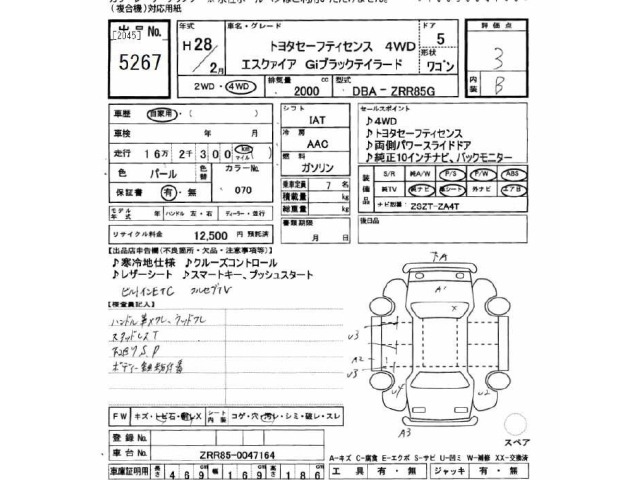 (複合機)対応用紙
出品No.
[2045]
5267
年式
H28/2月
車名・グレード
トヨタセーフティセンス 4WD
エスクァイア Giブラックテイラード
ドア
5
形状
ワゴン
評価点
3
内装
B
2WD・4WD
排気量 cc
2000
型式
DBA－ZRR85G
車歴 自家用・( )
車検 年 月
走行 16万2千300 km マイル
色 パール 色替 カラーNo. 070
保証書 有・無
モデル年式 年 ハンドル 左・右 ディーラー・並行
リサイクル料金 12,500 円 預託済
シフト
IAT
冷房
AAC
燃料
ガソリン
乗車定員 7 名
積載量 kg
総重量 kg
書類期限
月 日
セールスポイント
♪4WD
♪トヨタセーフティセンス
♪両側パワースライドドア
♪純正10インチナビ、バックモニター
装備品
S/R 純A/W P/S P/W ABS
純TV 純ナビ 革シート 外ナビ エアB
ナビ型番 ZSZT-ZA4T
後日品
【出品店申告欄(不良箇所・欠品・注意事項等)】
♪寒冷地仕様 ♪クルーズコントロール
♪レザーシート ♪スマートキー、プッシュスタート
ビルトインETC フルセグTV
【検査員記入】
スタッドレスT
FW キズ・トビ石・軽レX シート内装 コゲ・穴・汚レ・シミ・破レ・スレ
登録No.
車台No. ZRR85-0047164
車庫証明用 長さ 469 幅 169 高さ 186
A1
X
U3
A2
U3
U4
U2
A3
スペア
A－キズ C－腐食 E－エクボ S－サビ U－凹ミ W－補修 XX－交換済
工具 有・無 ジャッキ 有・無